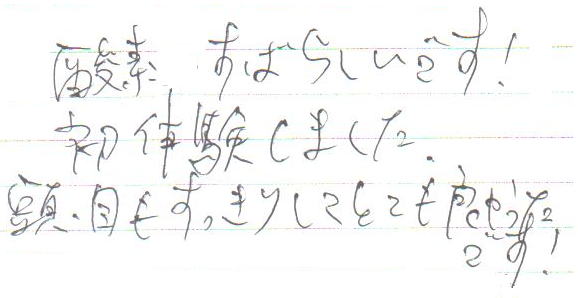 酸素 すばらしいです!
初体験しました.
頭.目もすっきりしてとても
です!